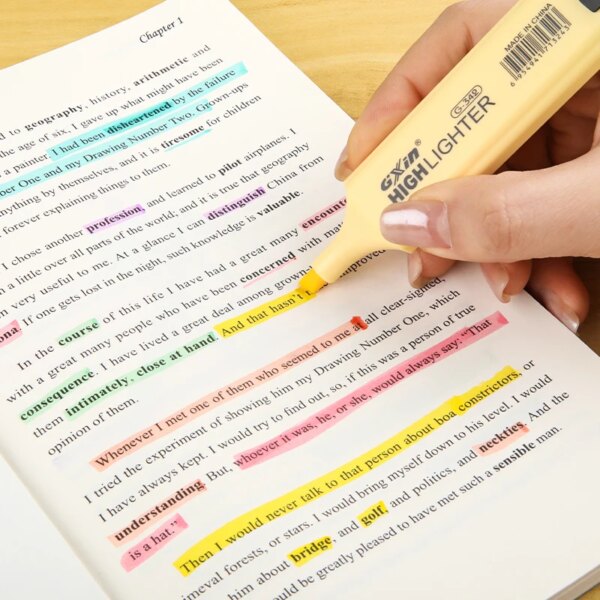 Chapter 1
ed to geography, history, arithmetic and
the age of six, I gave up what might have been
a painter. I had been disheartened by the failure
ber One and my Drawing Number Two. Grown-ups
anything by themselves, and it is tiresome for children
forever explaining things to them.
I chose another profession, and learned to pilot airplanes. I
n a little over all parts of the world; and it is true that geography
n very useful to me. At a glance I can distinguish China from
ona. If one gets lost in the night, such knowledge is valuable.
In the course of this life I have had a great many encounte
with a great many people who have been concerned with ma
consequence. I have lived a great deal among grown-
them intimately, close at hand. And that hasn't improved
opinion of them.
Whenever I met one of them who seemed to me at all clear-sighted,
I tried the experiment of showing him my Drawing Number One, which
I have always kept. I would try to find out, so, if this was a person of true
understanding But, whoever it was, he, or she, would always say: "That
is a hat."
Then I would never talk to that person about boa constrictors, or
imeval forests, or stars. I would bring myself down to his level. I would
him about bridge, and golf, and politics, and neckties. And the
would be greatly pleased to have met such a sensible man.
MADE IN CHINA
6 954941 713243
G-342
GXin®
HIGHLIGHTER